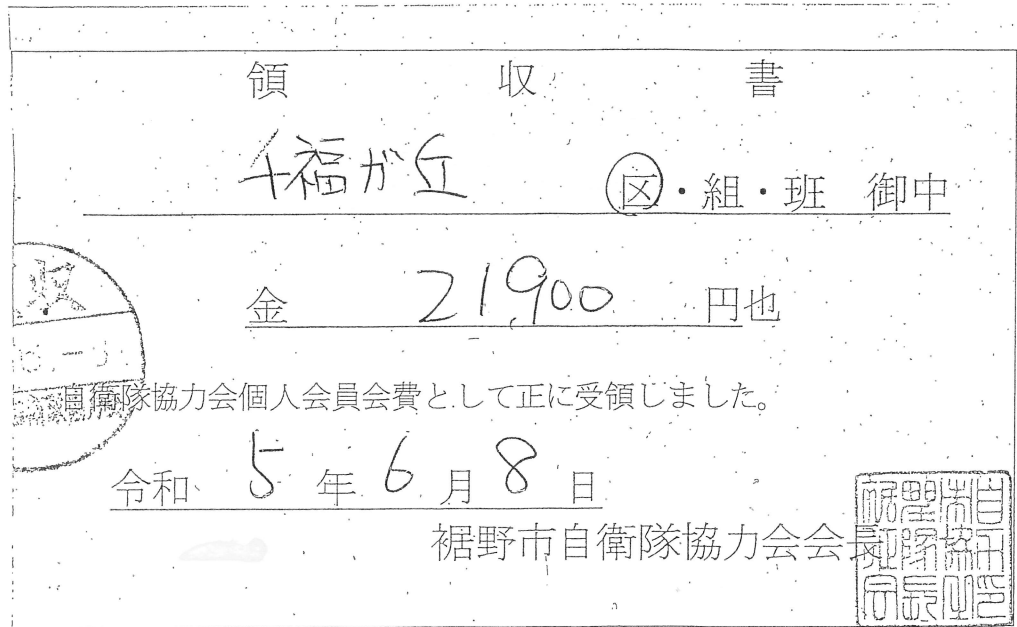 領 収 書
千福が丘 区・組・班 御中
金 21,900 円也
自衛隊協力会個人会員会費として正に受領しました。
令和 5 年 6 月 8 日
裾野市自衛隊協力会会長
収